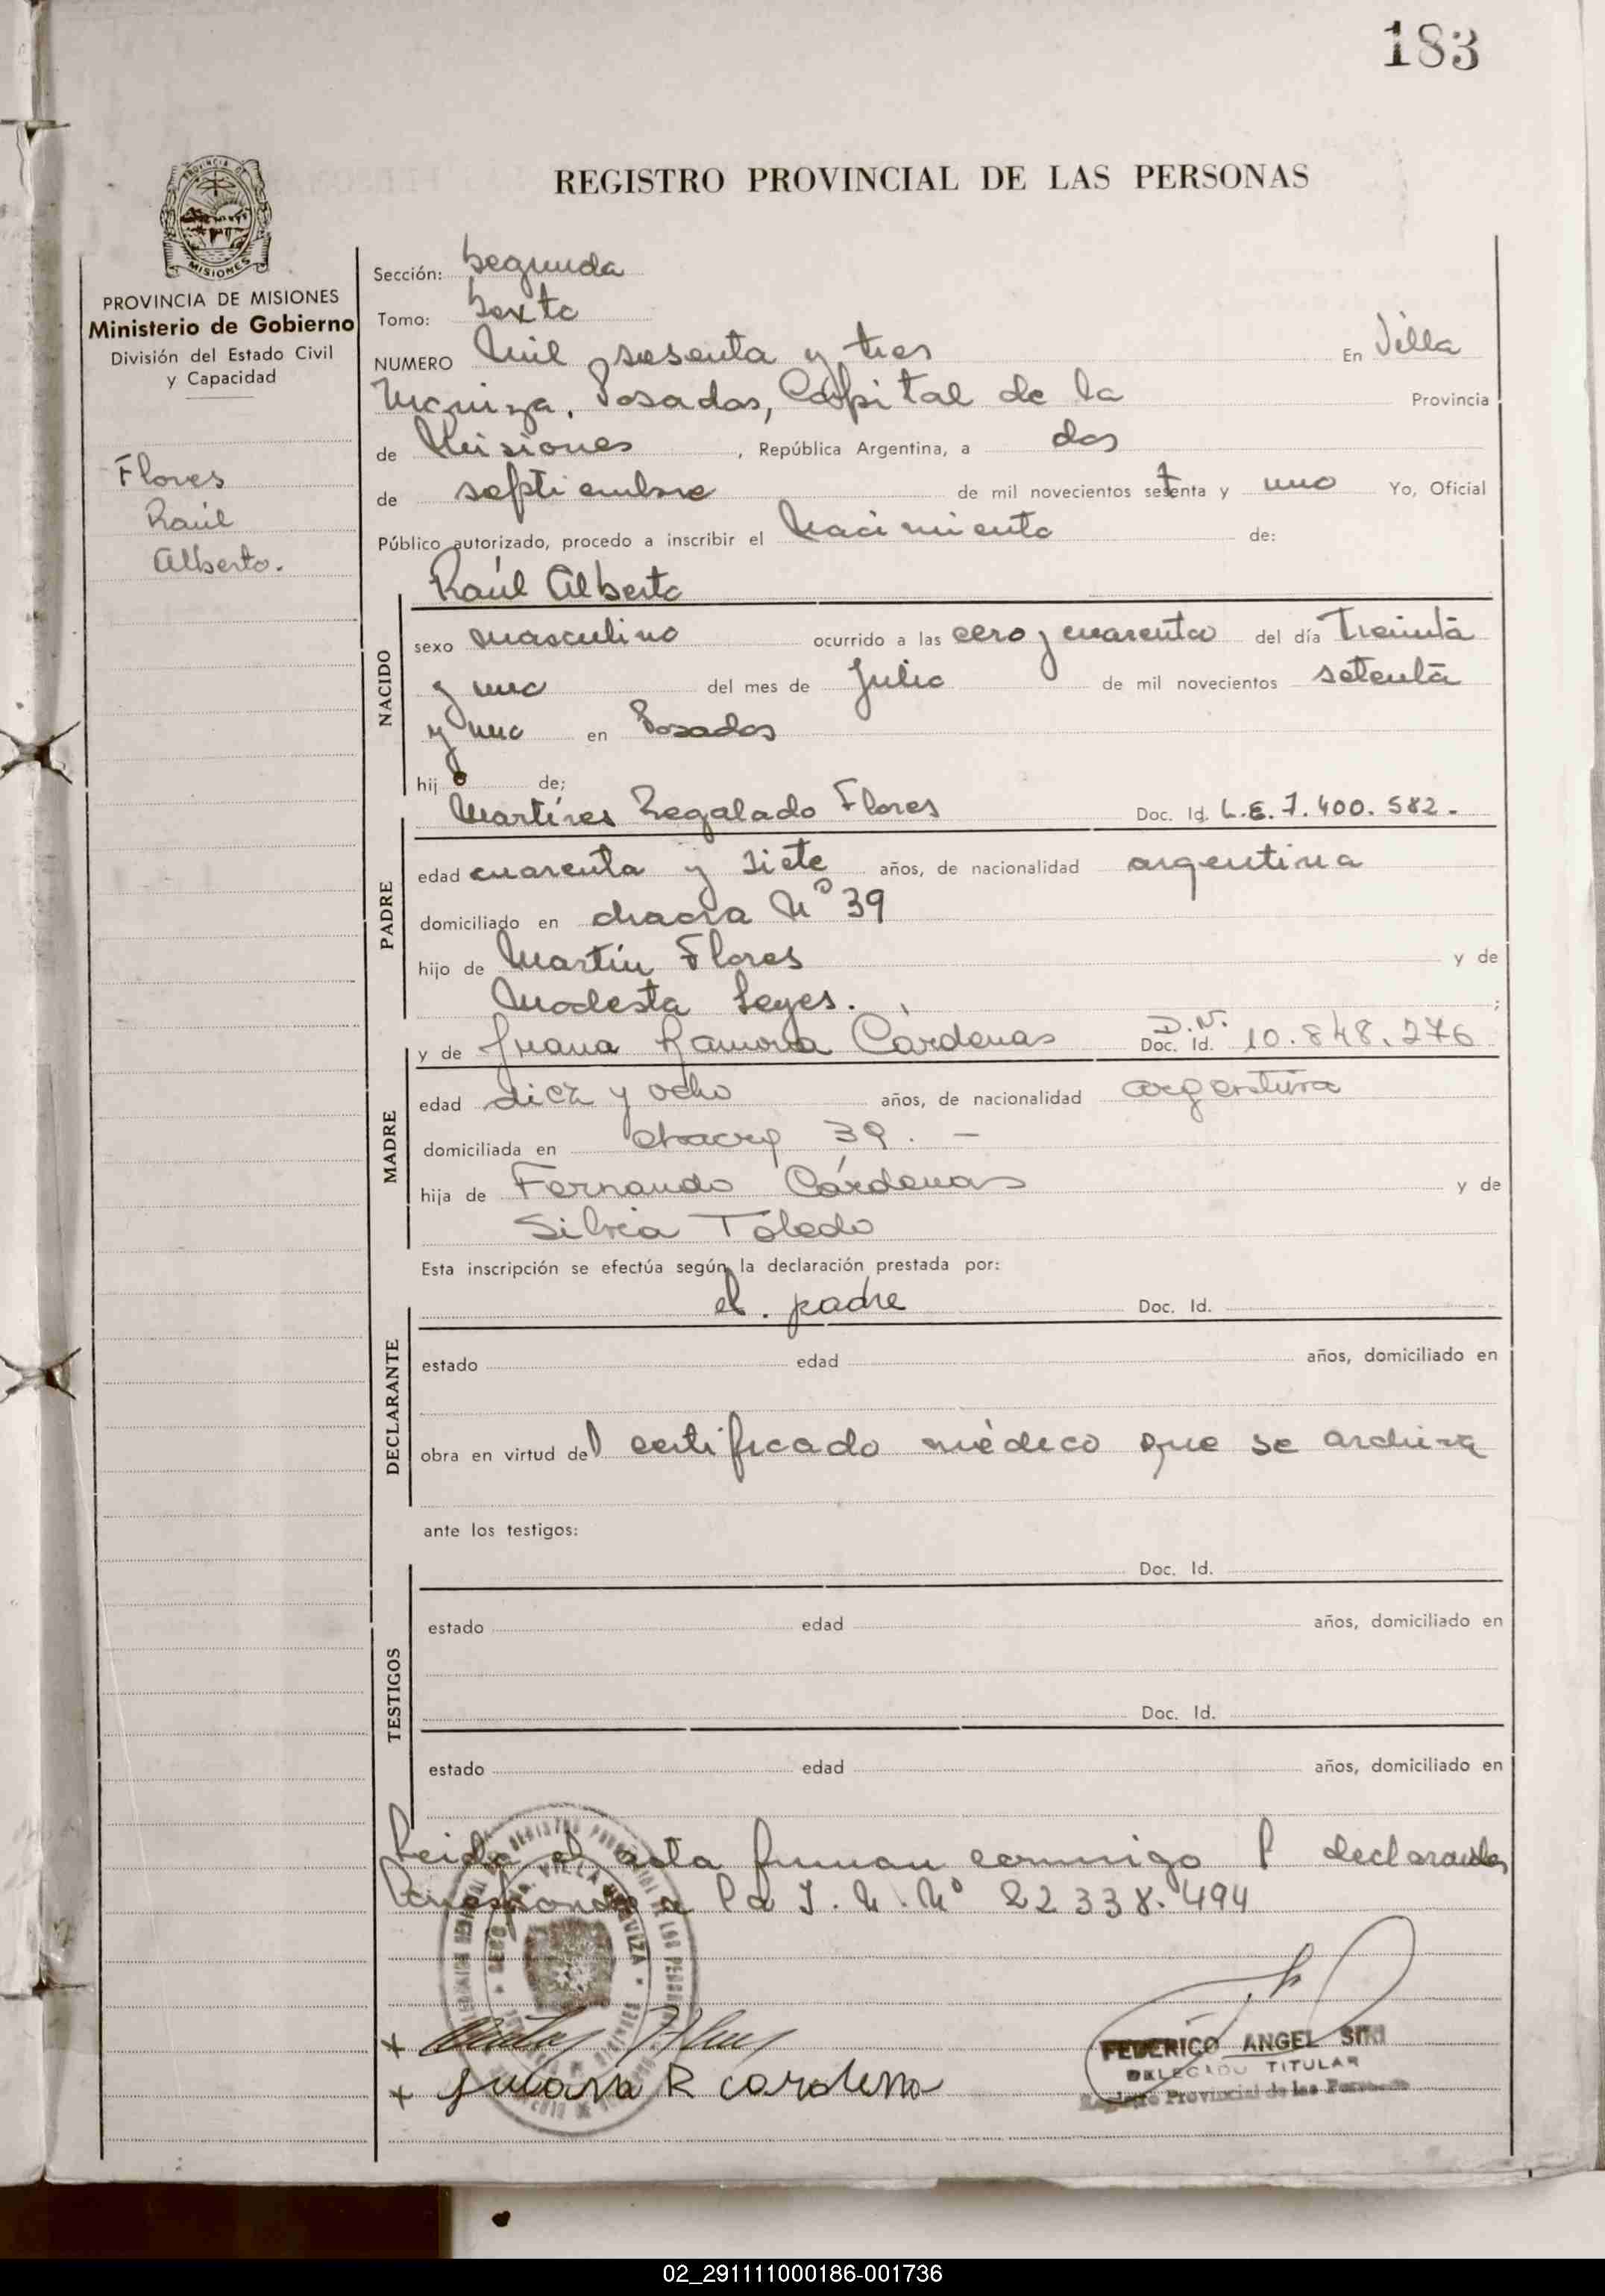 183
REGISTRO PROVINCIAL DE LAS PERSONAS
PROVINCIA
MISIONES
PROVINCIA DE MISIONES
Ministerio de Gobierno
División del Estado Civil
y Capacidad
Flores
Raúl
Alberto.
Sección: Segunda
Tomo: Sexto
NUMERO Mil sesenta y tres En Villa
Urquiza, Posadas, Capital de la Provincia
de Misiones, República Argentina, a dos
de septiembre de mil novecientos setenta y uno Yo, Oficial
Público autorizado, procedo a inscribir el Nacimiento de:
Raúl Alberto
NACIDO
sexo masculino ocurrido a las cero y cuarenta del día Treinta
y uno del mes de Julio de mil novecientos setenta
y uno en Posadas
hijo de;
Martíres Regalado Flores Doc. Id. L.E. 7.400.582.-
PADRE
edad cuarenta y siete años, de nacionalidad argentina
domiciliado en chacra Nº 39
hijo de Martín Flores y de
Modesta Leyes. ;
y de Juana Ramona Cárdenas D.N. Doc. Id. 10.848.276
MADRE
edad diez y ocho años, de nacionalidad argentina
domiciliada en chacra 39. -
hija de Fernando Cárdenas y de
Silvia Toledo
Esta inscripción se efectúa según la declaración prestada por:
el. padre Doc. Id.
DECLARANTE
estado edad años, domiciliado en
obra en virtud del certificado médico que se archiva
ante los testigos:
Doc. Id.
TESTIGOS
estado edad años, domiciliado en
Doc. Id.
estado edad años, domiciliado en
Leida el acta firman conmigo l declarantes
Corresponde a la I. N. Nº 22338.494
VILLA URQUIZA
x Flores
x Juana R cardena
FEDERICO ANGEL
DELEGADO TITULAR
Registro Provincial de las Personas
02_291111000186-001736